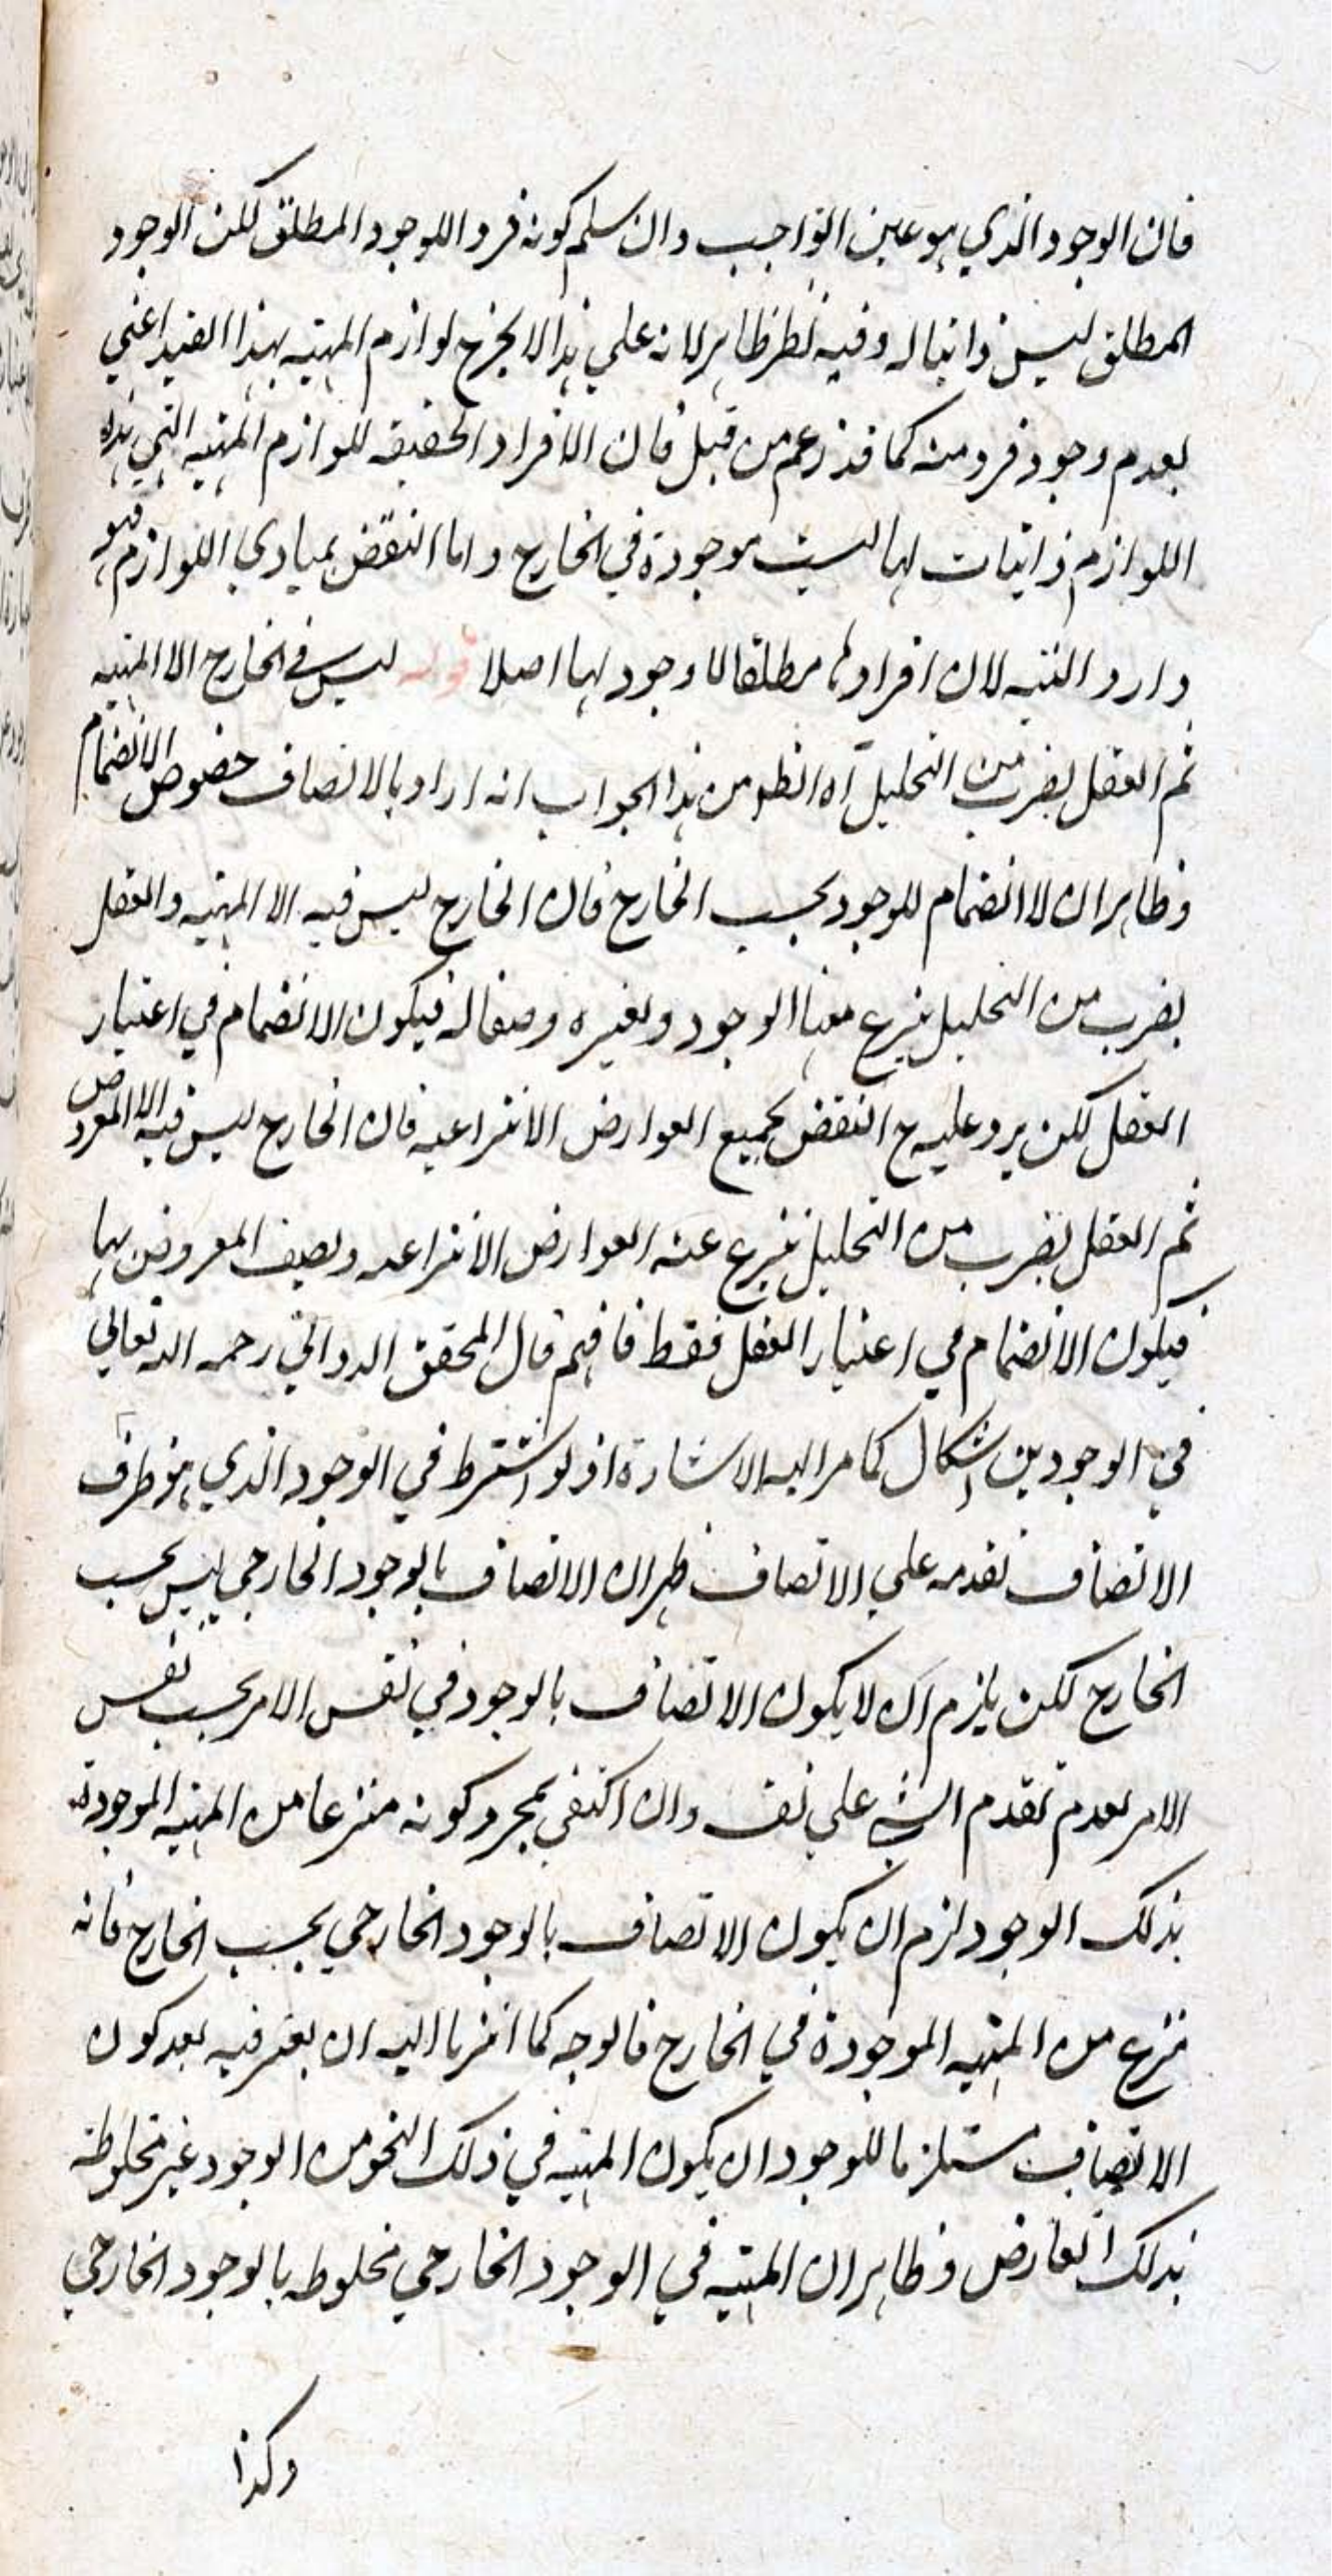 فان الوجود الذي هو عين الواجب وان سلم كونه فردا للوجود المطلق لكن الوجود
المطلق ليس ذاتيا له وفيه نظر ظاهر لانه علي هذا لا يخرج لوازم المهية بهذا القيد اعني
بعدم وجود فرد منه كما قد زعم من قبل فان الافراد الحقيقه للوازم المهية التي هذه
اللوازم ذاتيات لها ليست موجودة في الخارج واما النقض بمبادي اللوازم فهو
وارد البتة لان افرادها مطلقا لا وجود لها اصلا قوله ليس في الخارج الا المهية
ثم العقل بضرب من التحليل آه الظ من هذا الجواب انه اراد بالاتصاف خصوص الانضمام
وظاهر ان لا انضمام للوجود بحسب الخارج فان الخارج ليس فيه الا المهية والعقل
بضرب من التحليل ينزع منها الوجود ويعتبره وصفا له فيكون الانضمام في اعتبار
العقل لكن يرد عليه ح النقض بجميع العوارض الانتزاعية فان الخارج ليس فيه الا المعروض
ثم العقل بضرب من التحليل ينزع عنه العوارض الانتزاعيه ويصف المعروض بها
فيكون الانضمام في اعتبار العقل فقط فافهم قال المحقق الدواني رحمه الله تعالي
في الوجودين اشكال كما مر اليه الاشارة اذ لو اشترط في الوجود الذي هو ظرف
الاتصاف تقدمه علي الاتصاف ظهر ان الاتصاف بالوجود الخارجي ليس بحسب
الخارج لكن يلزم ان لا يكون الاتصاف بالوجود في نفس الامر بحسب نفس
الامر لعدم تقدم الشي علي نفسه وان اكتفي بمجرد كونه منتزعا من المهية الموجودة
بذلك الوجود لزم ان يكون الاتصاف بالوجود الخارجي بحسب الخارج فانه
ينتزع من المهية الموجودة في الخارج فالوجه كما اشرنا اليه ان يعتبر فيه بعد كون
الاتصاف مستلزما للوجود ان يكون المهية في ذلك النحو من الوجود غير مخلوطة
بذلك العارض وظاهر ان المهية في الوجود الخارجي مخلوطه بالوجود الخارجي
وكذا